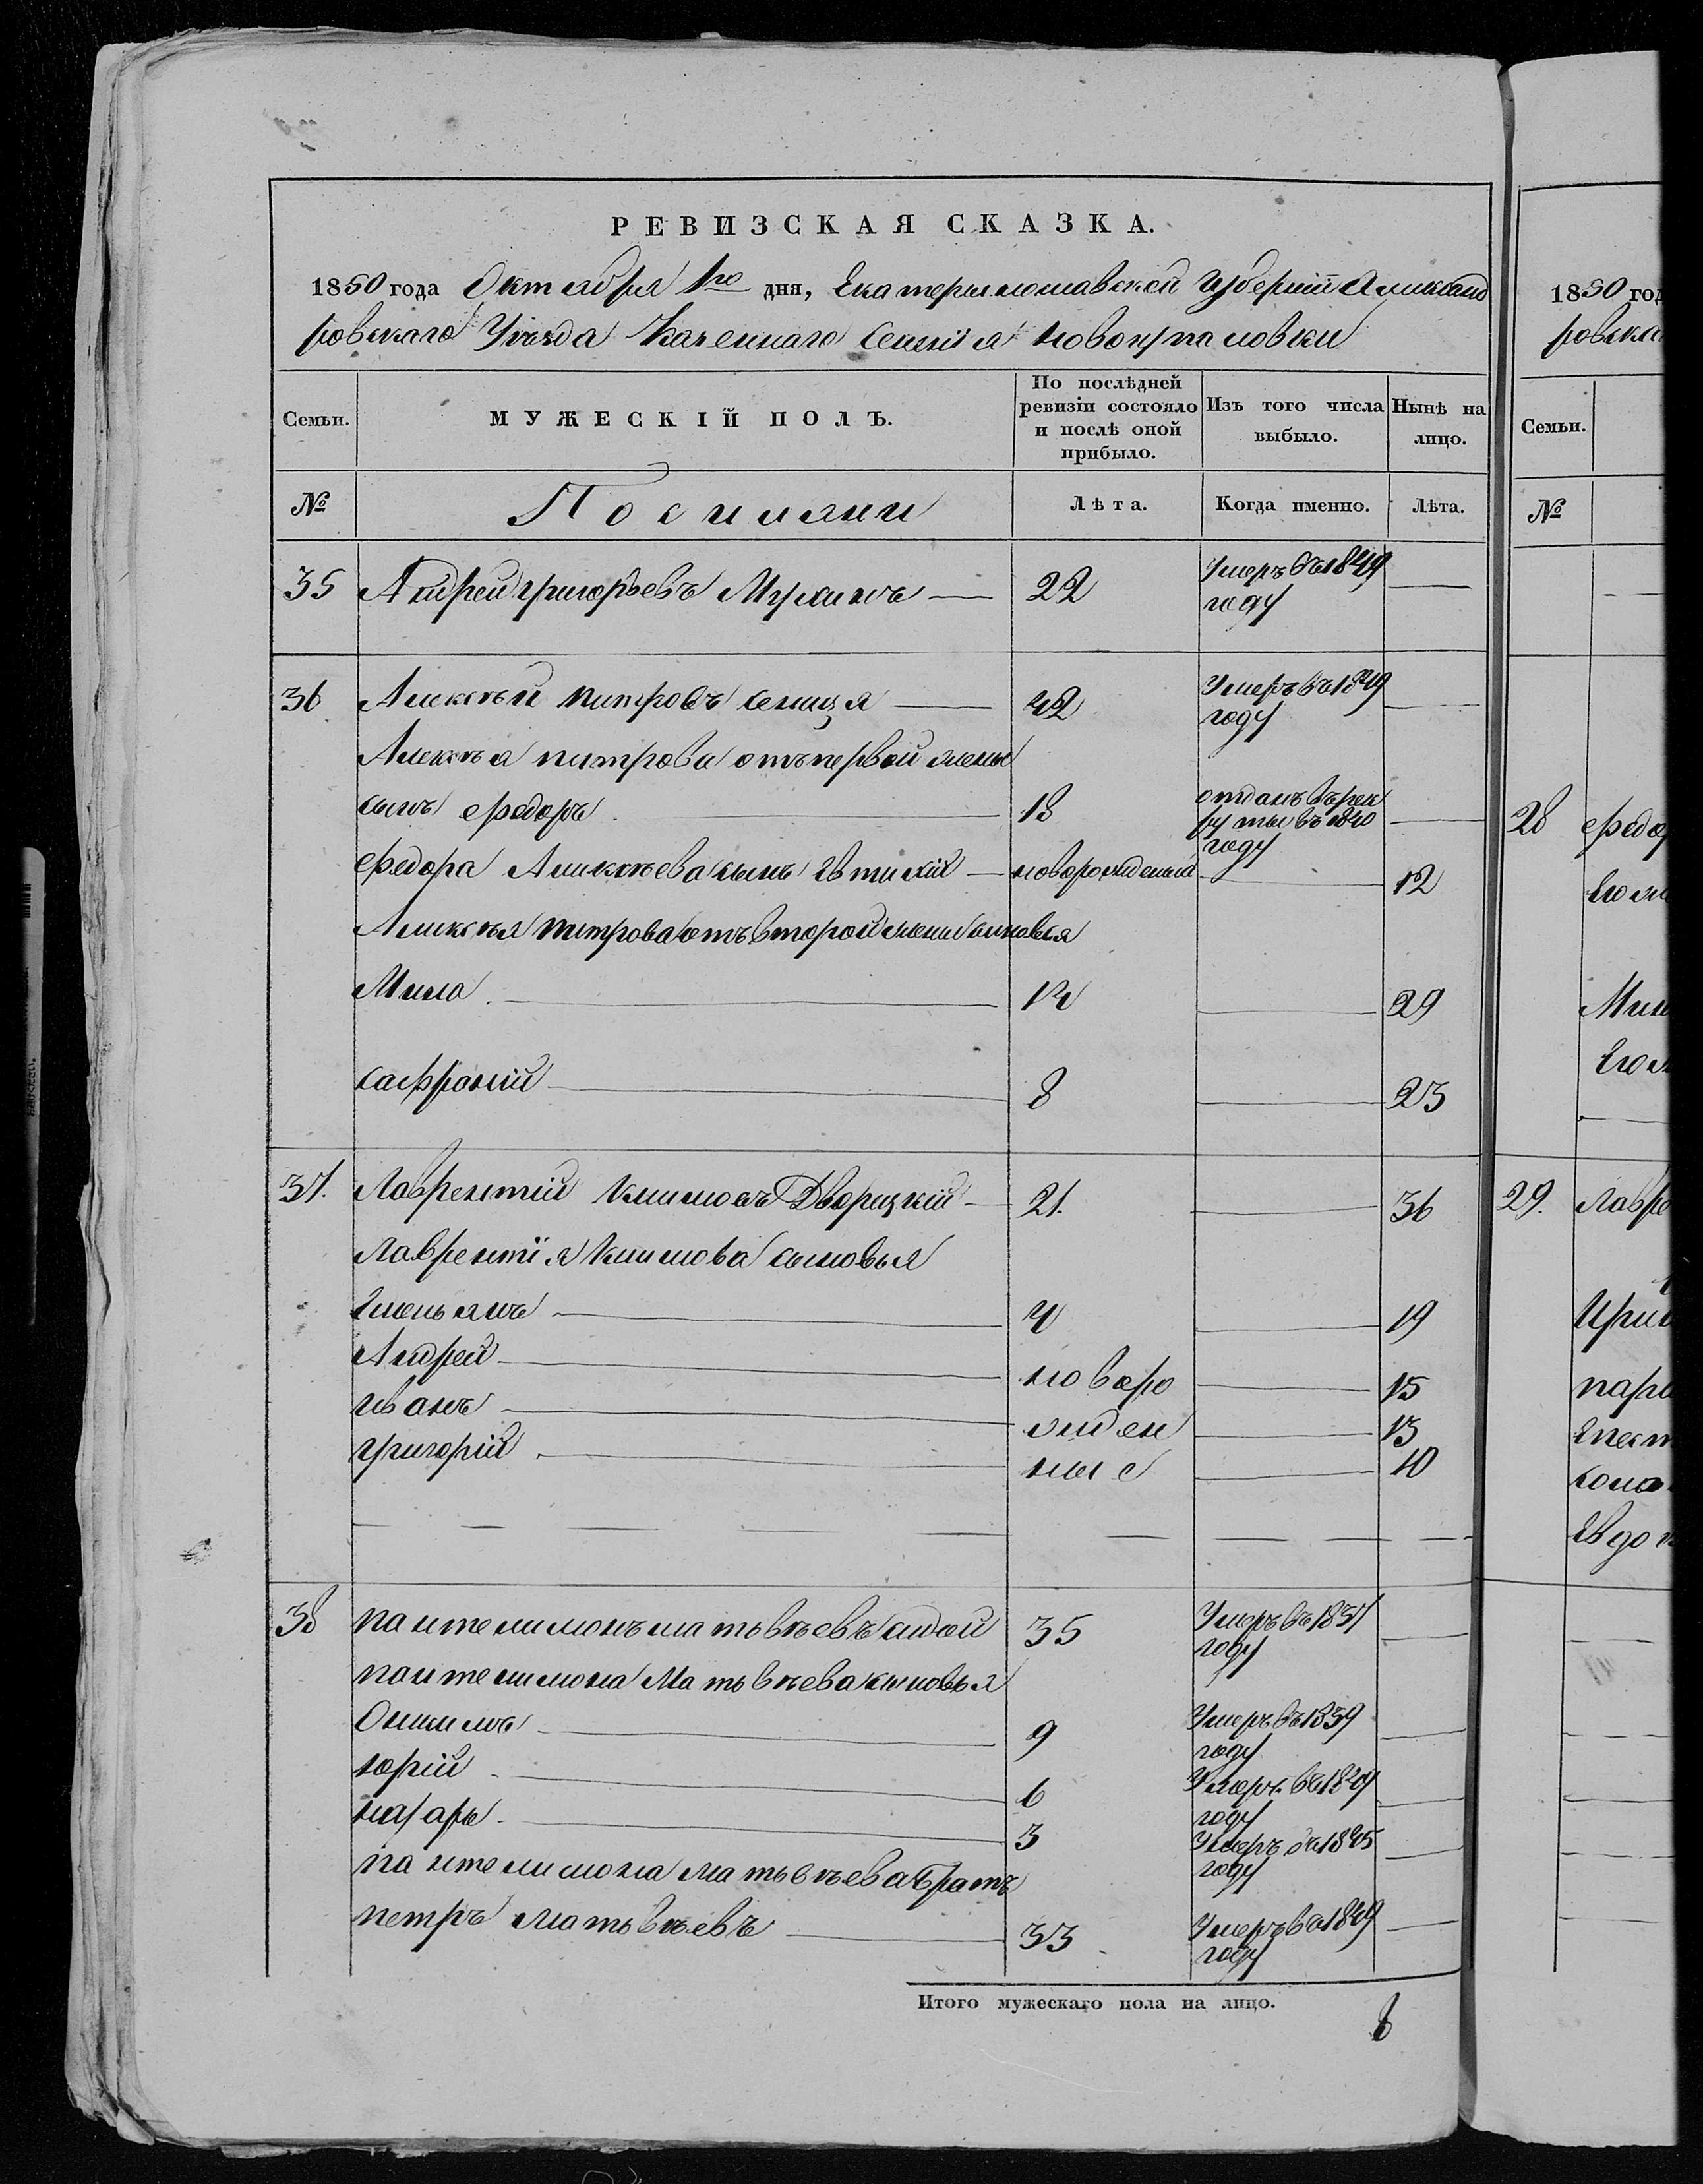 РЕВИЗСКАЯ СКАЗКА.
1850 года Октября 1го дня, Екатеринославской Губерніи Александ
ровскаго Уѣзда Казеннаго Селенія Новокупаловки
Семьи. МУЖЕСКІЙ ПОЛЪ. По послѣдней ревизіи состояло и послѣ оной прибыло. Изъ того числа выбыло. Нынѣ на лицо.
№ Поселяни Лѣта. Когда именно. Лѣта.
35 Андрей Григорьевъ 22 Умеръ въ 1849 году
36 Алексѣй Петровъ 42 Умеръ въ 1849 году
Алексѣя Петрова отъ первой жены
сынъ Федоръ 18 отданъ въ рекруты въ 1840 году
Федора Алексѣева сынъ Евтихій новорожденный 12
Алексѣя Петрова отъ второй жены сыновья
Мина 14 29
Сафроній 8 23
37. Лаврентій Климовъ Дворецкій 21. 36
Лаврентія Климова сыновья
Емельянъ 4 19
Андрей новоро 15
Иванъ жден 13
Григорій ные 10
38 Пантелимонъ Матьвѣевъ 35 Умеръ въ 1837 году
Пантелимона Матьвѣева сыновья
Онисимъ 9 Умеръ въ 1839 году
Юрій 6 Умеръ въ 1849 году
Назаръ 3 Умеръ въ 1845 году
Пантелимона Матьвѣева братъ
Петръ Матьвѣевъ 33 Умеръ въ 1849 году
Итого мужескаго пола на лицо. 8
1850 год
Семьи.
№
28
29.